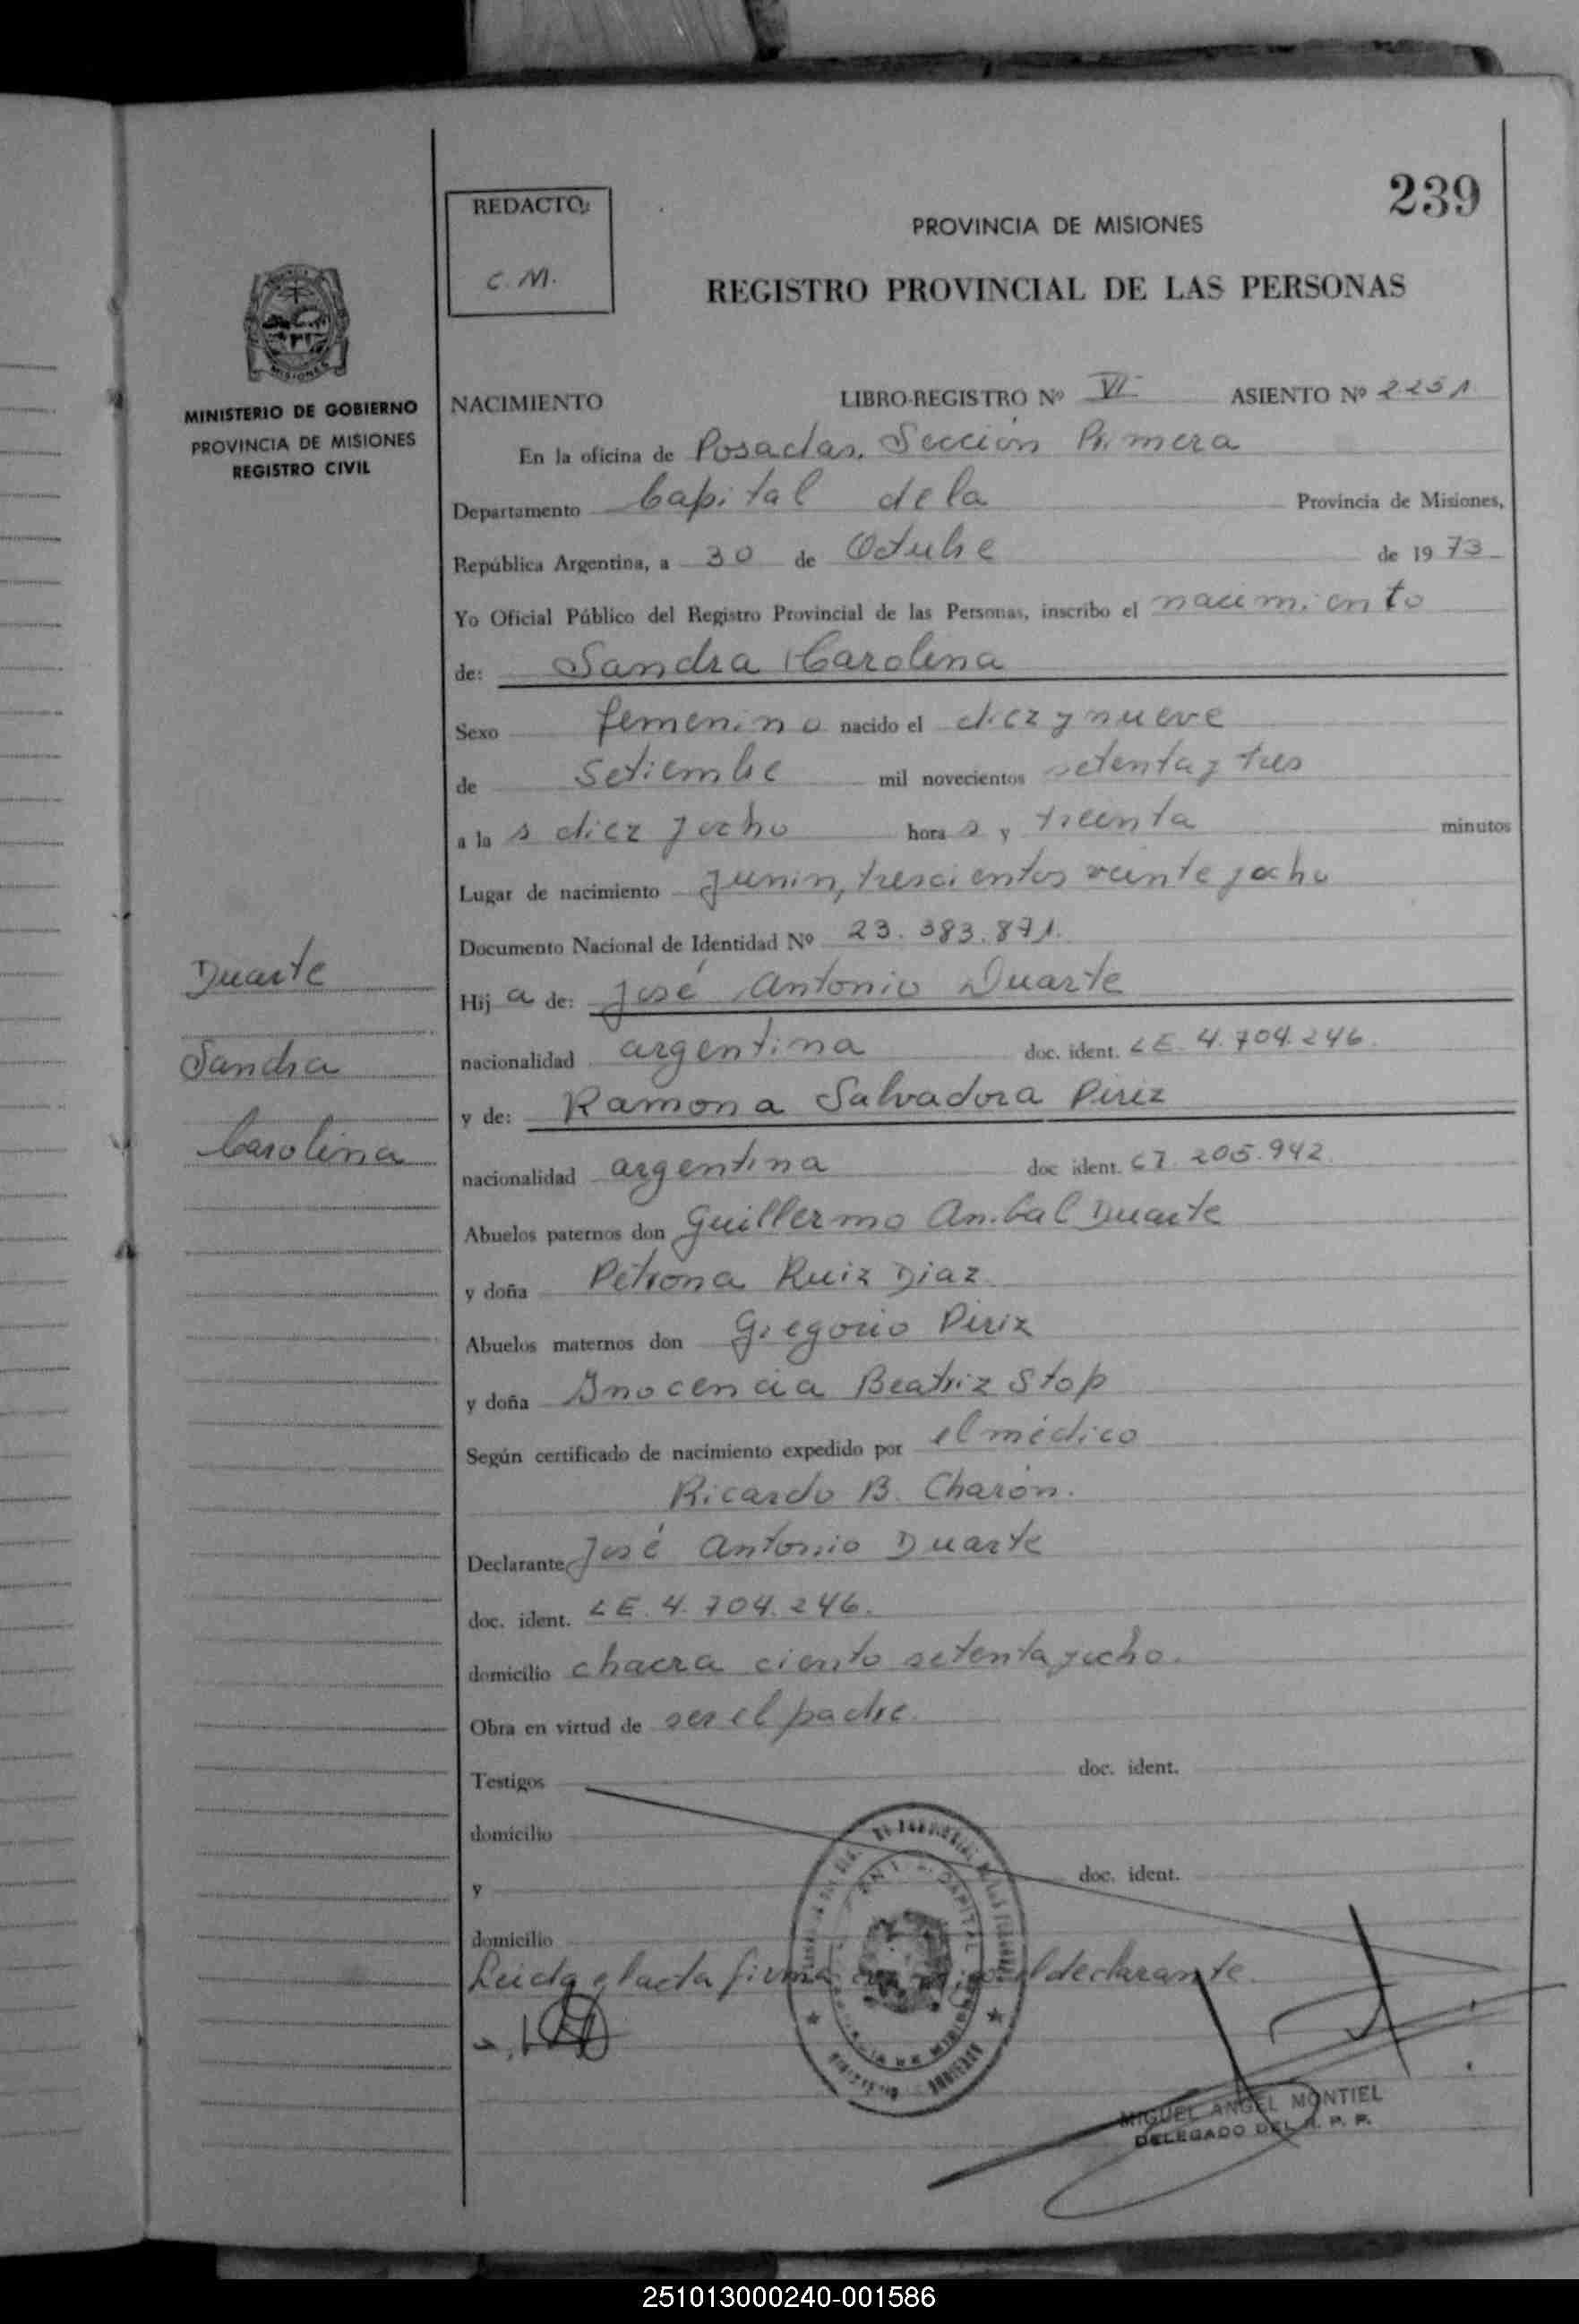 239
REDACTO:
C. M.
PROVINCIA DE MISIONES
REGISTRO PROVINCIAL DE LAS PERSONAS
MISIONES
MINISTERIO DE GOBIERNO
PROVINCIA DE MISIONES
REGISTRO CIVIL
NACIMIENTO LIBRO-REGISTRO Nº VI ASIENTO Nº 2251
En la oficina de Posadas, Sección Primera
Departamento Capital de la Provincia de Misiones,
República Argentina, a 30 de Octubre de 1973
Yo Oficial Público del Registro Provincial de las Personas, inscribo el nacimiento
de: Sandra Carolina
Sexo femenino nacido el diez y nueve
de Setiembre mil novecientos setenta y tres
a las diez y ocho horas y treinta minutos
Lugar de nacimiento Junin, trescientos veinte y ocho
Documento Nacional de Identidad Nº 23.383.871.
Hija de: José Antonio Duarte
nacionalidad argentina doc. ident. LE. 4.704.246.
y de: Ramona Salvadora Piriz
nacionalidad argentina doc ident. 205.942.
Abuelos paternos don Guillermo Anibal Duarte
y doña Petrona Ruiz Diaz
Abuelos maternos don Gregorio Piriz
y doña Inocencia Beatriz Stop
Según certificado de nacimiento expedido por el médico
Ricardo B. Charón.
Declarante José Antonio Duarte
doc. ident. LE. 4.704.246.
domicilio chacra ciento setenta y ocho.
Obra en virtud de ser el padre.
Testigos doc. ident.
domicilio
y doc. ident.
domicilio
Leida el acta firma el declarante.
MIGUEL ANGEL MONTIEL
DELEGADO DEL R. P. P.
Duarte
Sandra
Carolina
251013000240-001586